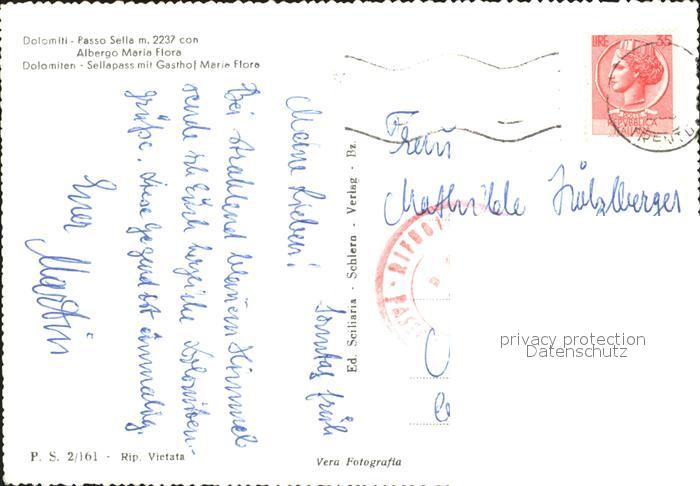 Dolomiti - Passo Sella m. 2237 con
Albergo Maria Flora
Dolomiten - Sellapass mit Gasthof Maria Flora
Sonntag früh
Meine Lieben!
Bei strahlend blauem Himmel
sende ich Euch herzliche Dolomiten-
grüße. Diese Gegend ist einmalig.
Euer
Martin
P. S. 2/161 - Rip. Vietata
Vera Fotografia
Ed. Sciliaria - Schlern - Verlag - Bz.
LIRE 35
POSTE
REPUBBLICA
ITALIANA
Frau
Mathilde Hölzlberger
RIFUGIO
privacy protection
Datenschutz